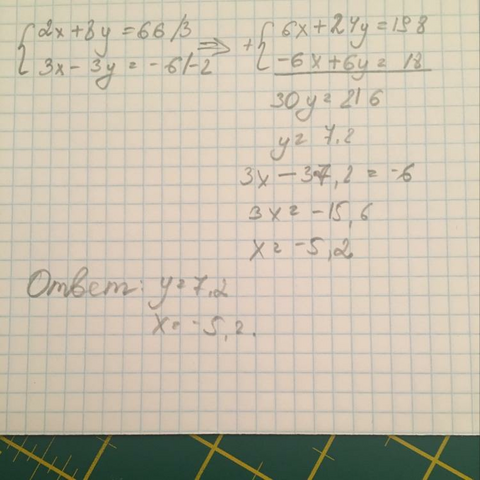 {2x+8y=66 /3 ⇒ +{6x+24y=198
{3x-3y=-6 /-2 {-6x+6y=18
30y=216
y=7,2
3x-37,2=-6
3x=-15,6
x=-5,2
Ответ: y=7,2
x=-5,2.